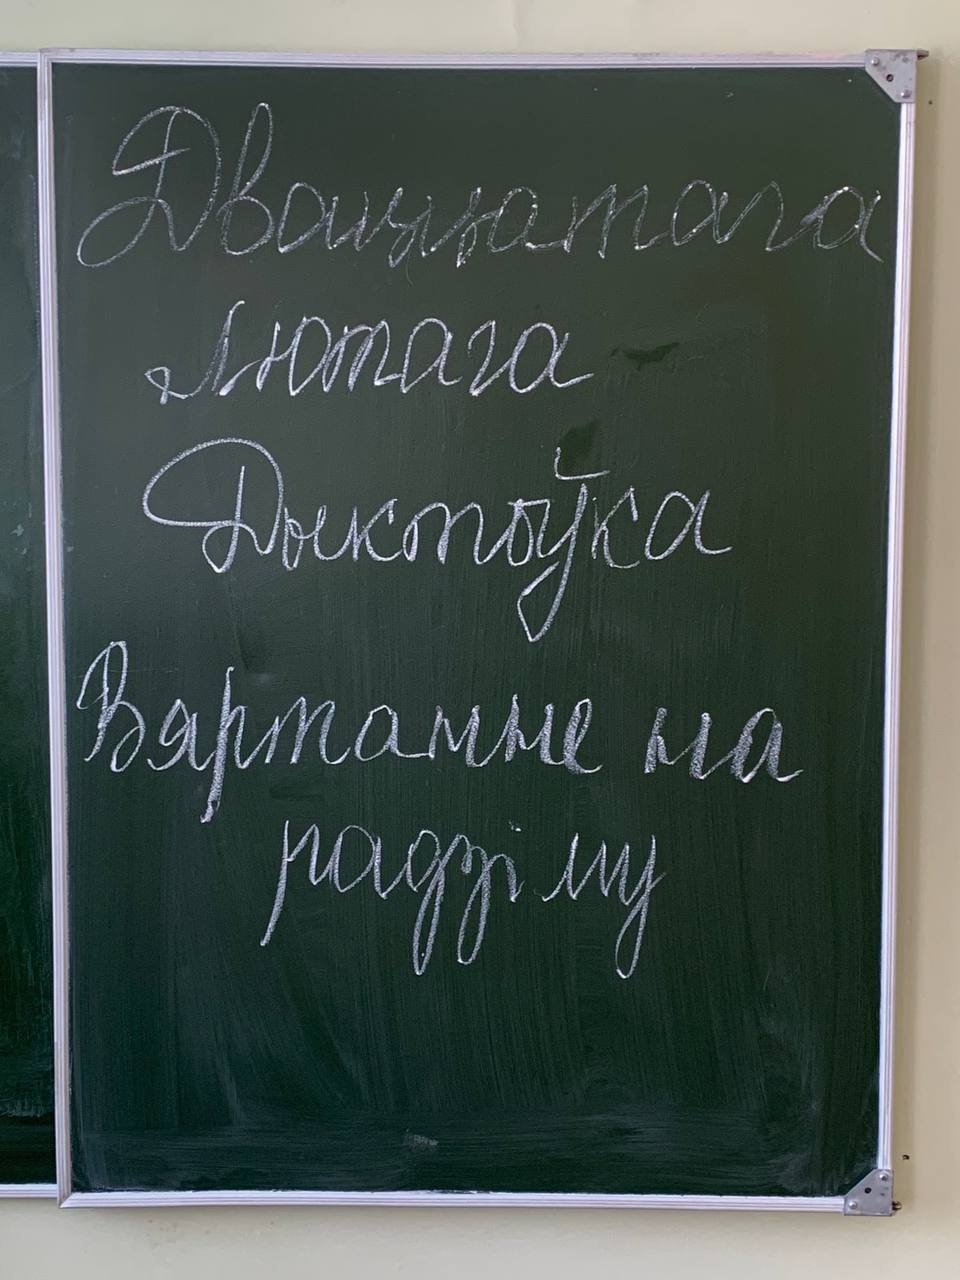 Дваццатага
лютага
Дыктоўка
Вяртанне на
радзіму